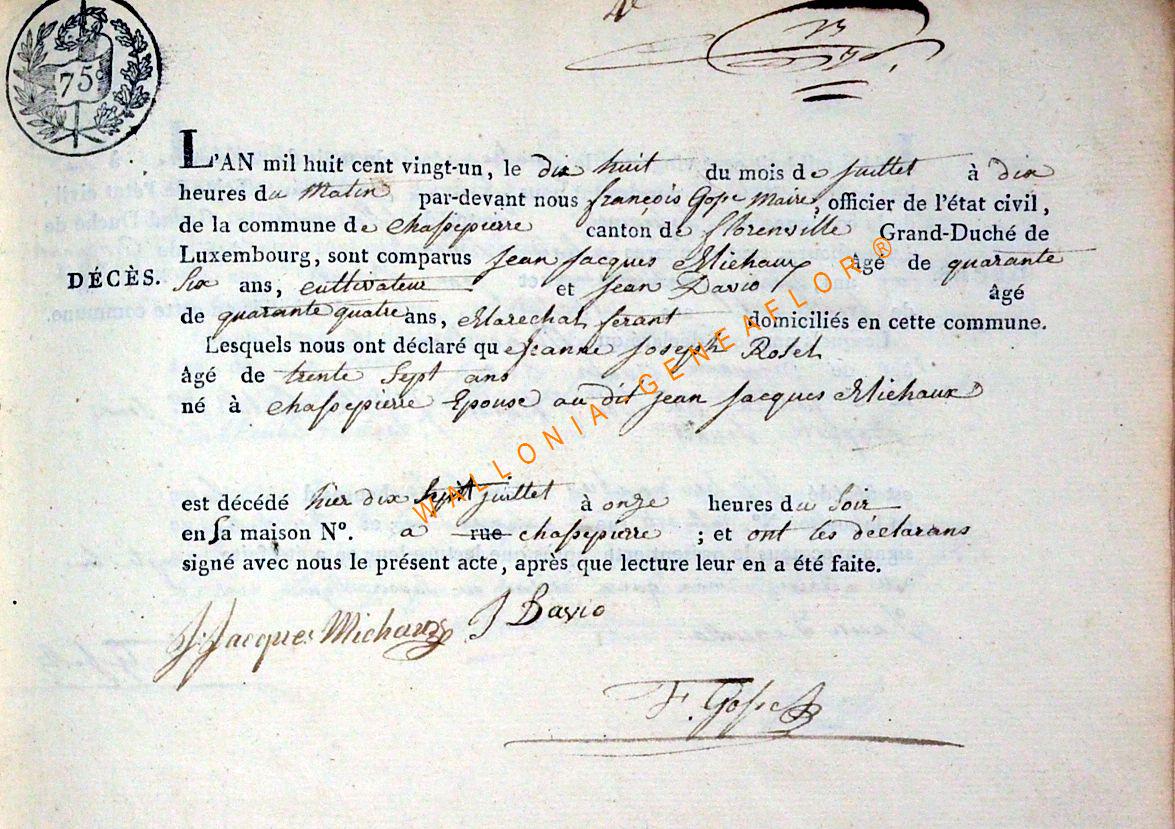 75c
L'AN mil huit cent vingt-un, le dix huit du mois de juillet à dix
heures du Matin par-devant nous françois Gofse Maire, officier de l'état civil,
de la commune de chassepierre canton de florenville Grand-Duché de
Luxembourg, sont comparus jean jacques Michaux âgé de quarante
DÉCÈS. Six ans, cultivateur et jean Davio âgé
de quarante quatre ans, Marechal ferant domiciliés en cette commune.
Lesquels nous ont déclaré que jeanne joseph Roset
âgé de trente Sept ans
né à chassepierre Epouse au dit jean jacques Michaux
est décédé hier dix Sept juillet à onze heures du Soir
en Sa maison N°. a rue chassepierre ; et ont les déclarans
signé avec nous le présent acte, après que lecture leur en a été faite.
J: Jacques Michaux J Davio
F. Gofse
WALLONIA GENEAFLOR®